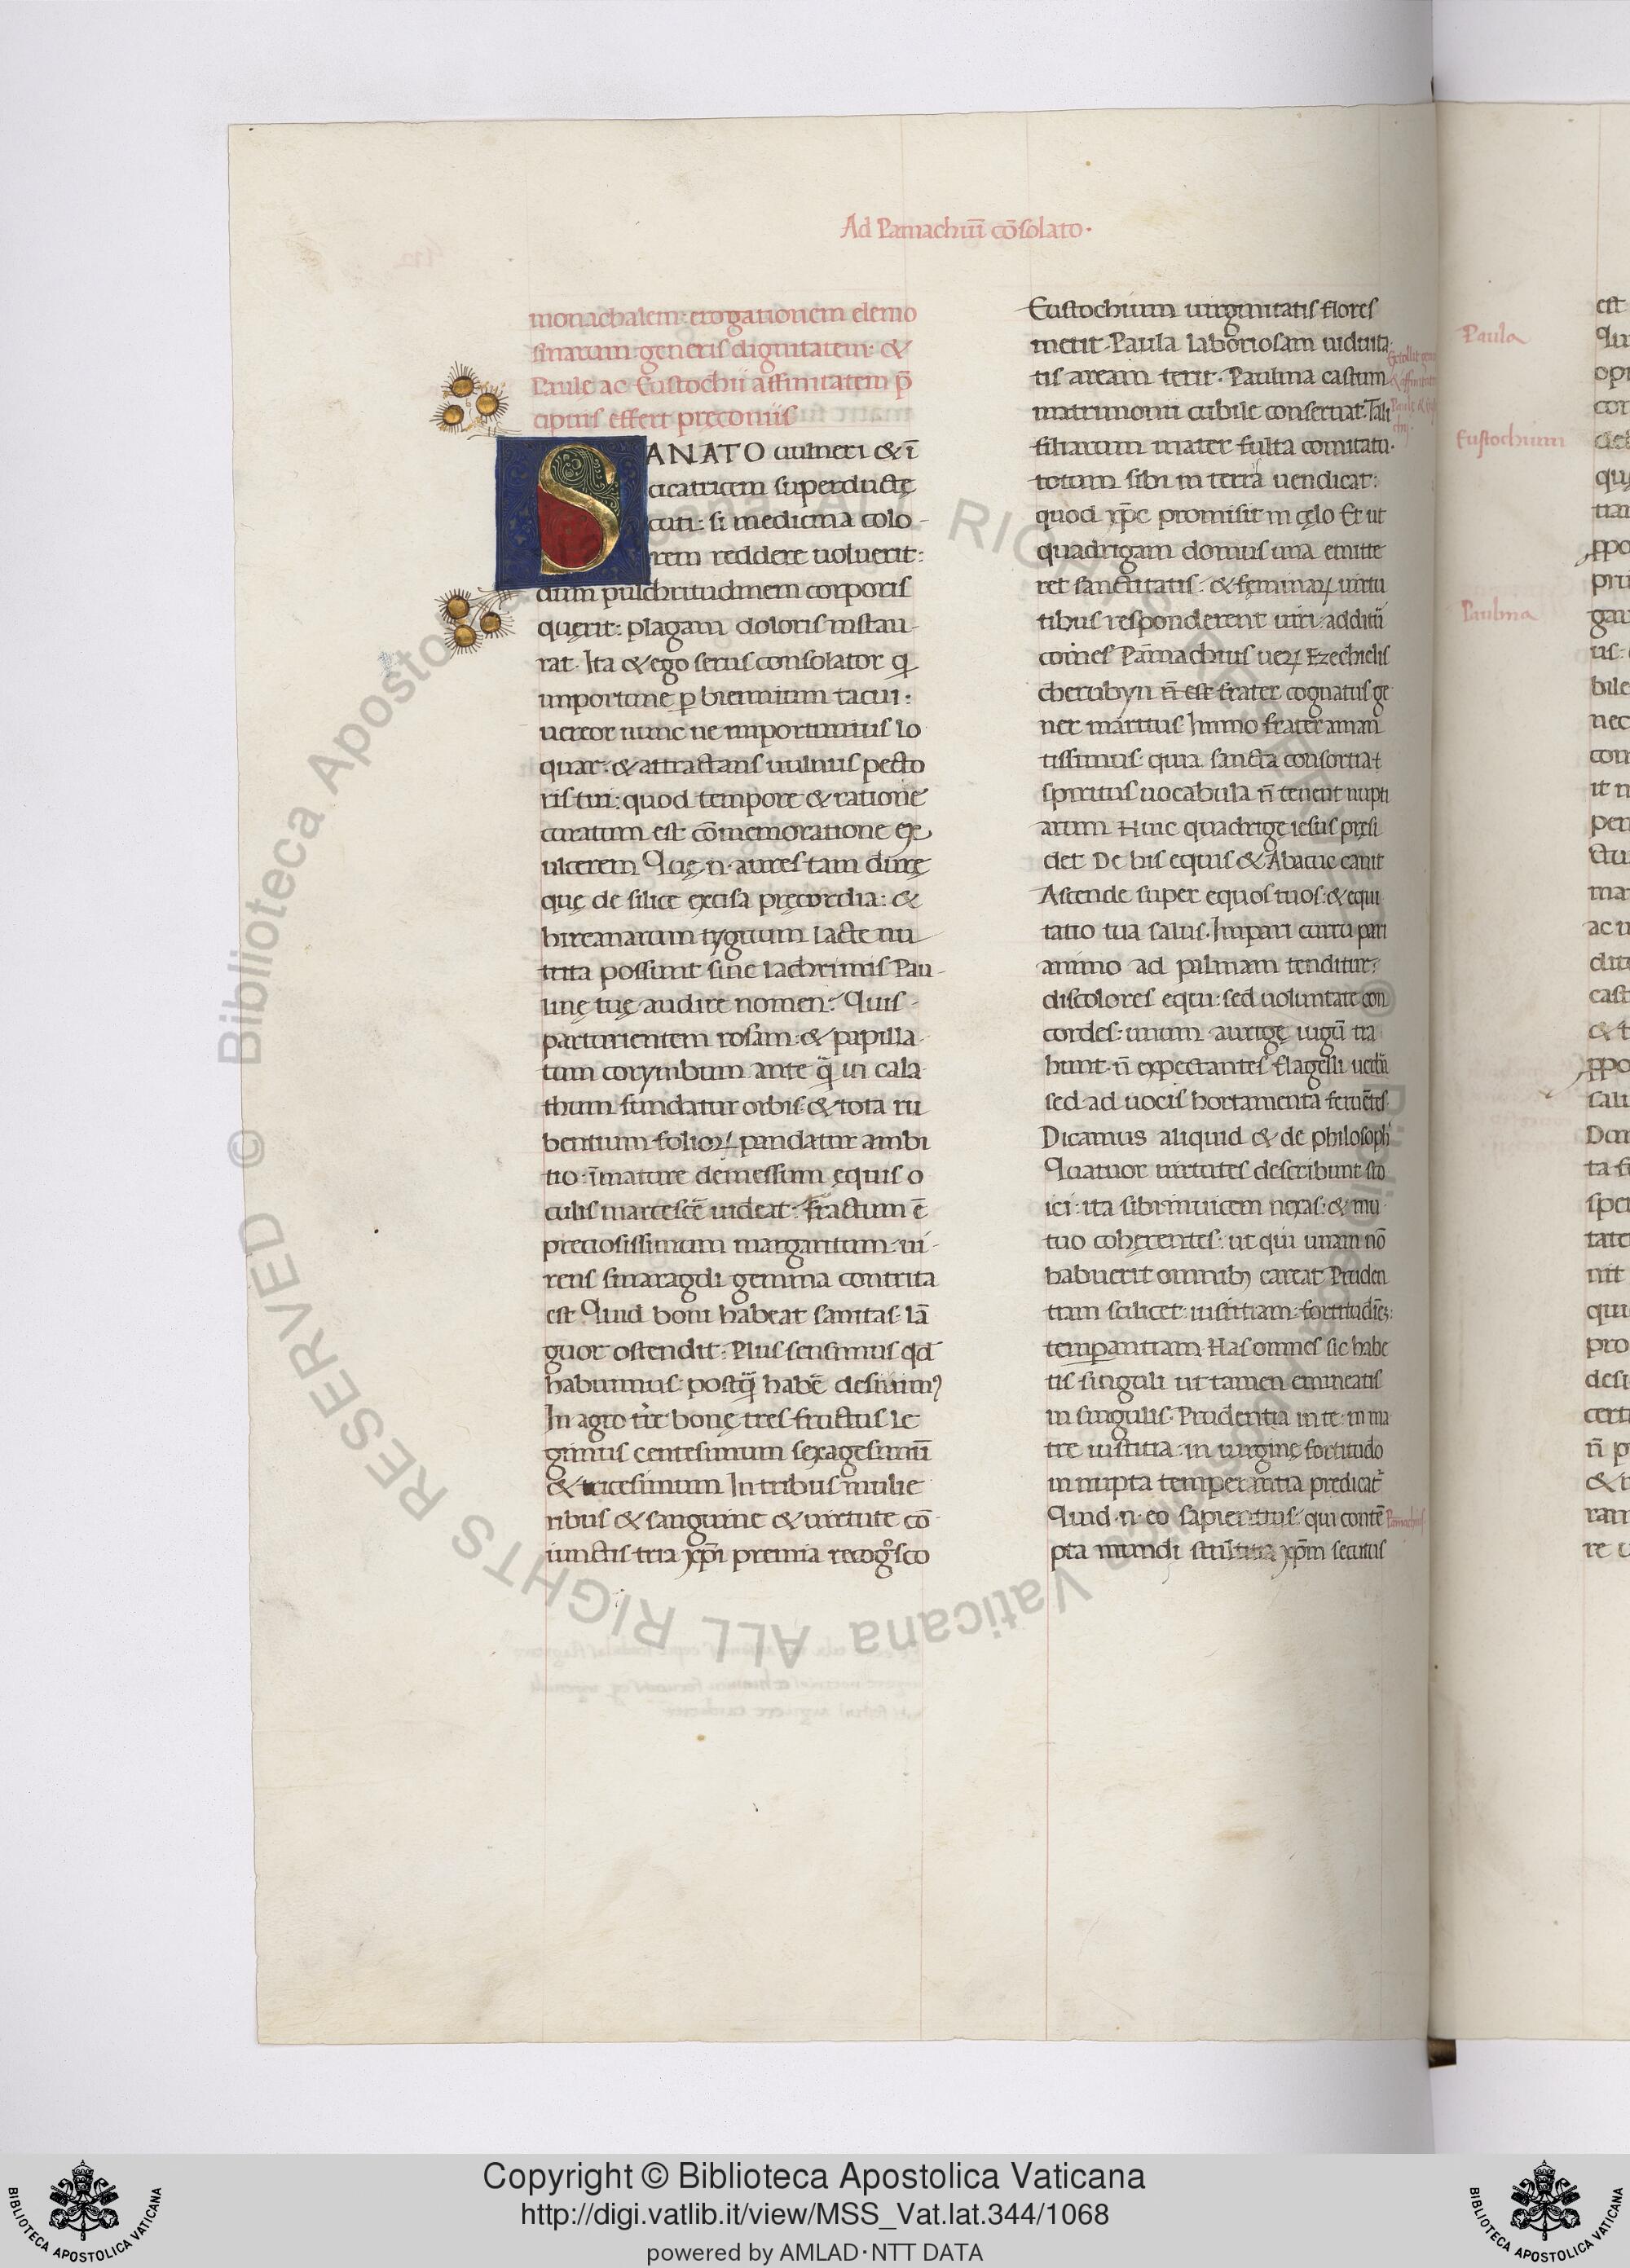 Ad Pamachiū cōsolato·
monachalem: erogationem elemo
sinarum: generis dignitatem: &
Paule ac Eustochii affinitatem p̄
cipuis effert pręconiis
SANATO uulneri & ī
cicatricem superductę
cuti: si medicina colo
rem reddere uoluerit:
dum pulchritudinem corporis
quęrit: plagam doloris instau
rat. Ita & ego serus consolator q
importune p biennium tacui:
uereor nunc ne importunius lo
quar: & attractans uulnus pecto
ris tui: quod tempore & ratione
curatum est cōmemoratione ex
ulcerem Quę.n.aures tam durę
quę de silice excisa pręcordia: &
hircanarum tygrium lacte nu
trita possunt sine lachrimis Pau
linę tuę audire nomen? Quis
parturientem rosam: & papilla
tum corymbum ante q̄ in cala
thum fundatur orbis & tota ru
bentium folioꝝ pandatur ambi
tio: īmature demessum ęquis o
culis marcescē uideat? Fractum ē
preciosissimum margaritum: ui
rens smaragdi gemma contrita
est Quid boni habeat sanitas: lā
guor ostendit: Plus sensimus qd
habuimus: postq̄ habē desiuimꝰ
In agro tr̄e bonę tres fructus le
gimus centesimum sexagesimū
& tricesimum In tribus mulie
ribus & sanguine & uirtute cō
iunctis tria xp̄i premia recogsco
Eustochium uirginitatis flores
metit. Paula laboriosam uiduita
tis aream terit. Paulina castum
matrimonii cubile conseruat. Tali
filiarum mater fulta comitatu.
totum sibi in terra uendicat:
quod xp̄c promisit in cęlo Et ut
quadrigam domus una emitte
ret sanctitatis: & feminaꝝ uirtu
tibus responderent uiri: additū
comes Pāmachius ueꝝ Ezechielis
cherubyn n̄ est frater cognatus ge
ner maritus Immo frater aman
tissimus: quia sancta consortia t
spiritus uocabula n̄ tenent nupti
arum Huic quadrigę iesus pręsi
det De his equis & Abacuc canit
Ascende super equos tuos: & equi
tatio tua salus. Impari cursu pari
animo ad palmam tenditur:
discolores equi: sed uoluntate con
cordes: unum aurigę iugū tra
hunt. n̄ expectantes flagelli uerbā
sed ad uocis hortamenta feruētes.
Dicamus aliquid & de philosoph
Quatuor uirtutes describunt sto
ici: ita sibi inuicem nexas: & mu
tuo cohęrentes: ut qui unam nō
habuerit omnibꝫ careat Pruden
tiam scilicet: iustitiam: fortitudinē:
temperantiam Has omnes sic habe
tis singuli ut tamen emineatis
in singulis. Prudentia in te: in ma
tre iustitia: in uirgine fortitudo
in nupta temperantia predicat
Quid.n.eo sapientius: qui contē
pta mundi stultitia xp̄m secutus
Pamachius
Paula
Eustochium
Paulina